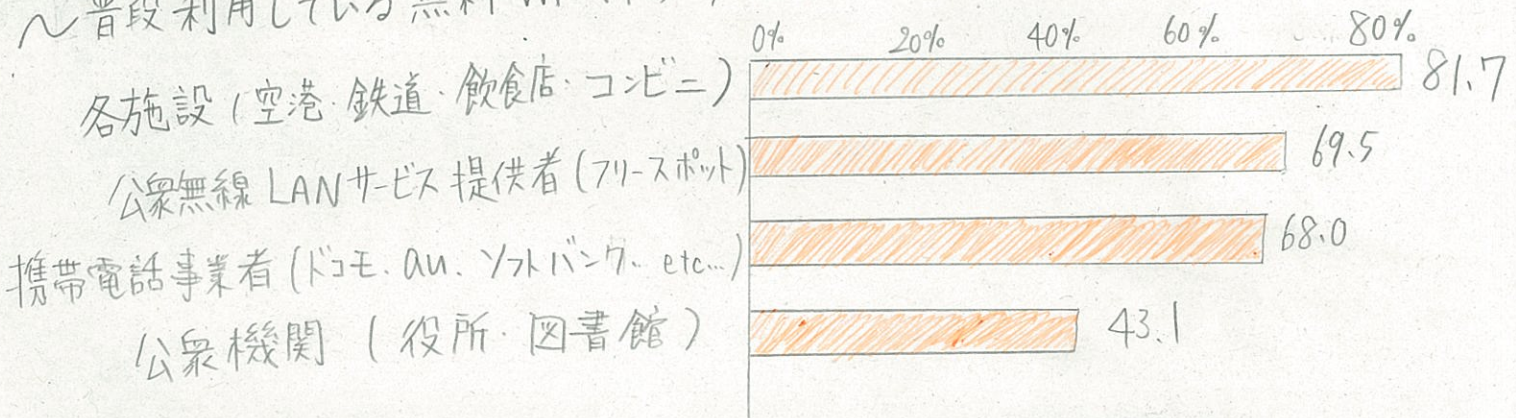 ～普段利用している無料
0% 20% 40% 60% 80%
各施設(空港・鉄道・飲食店・コンビニ) 81.7
公衆無線LANサービス提供者(フリースポット) 69.5
携帯電話事業者(ドコモ、au、ソフトバンク、etc...) 68.0
公衆機関(役所・図書館) 43.1